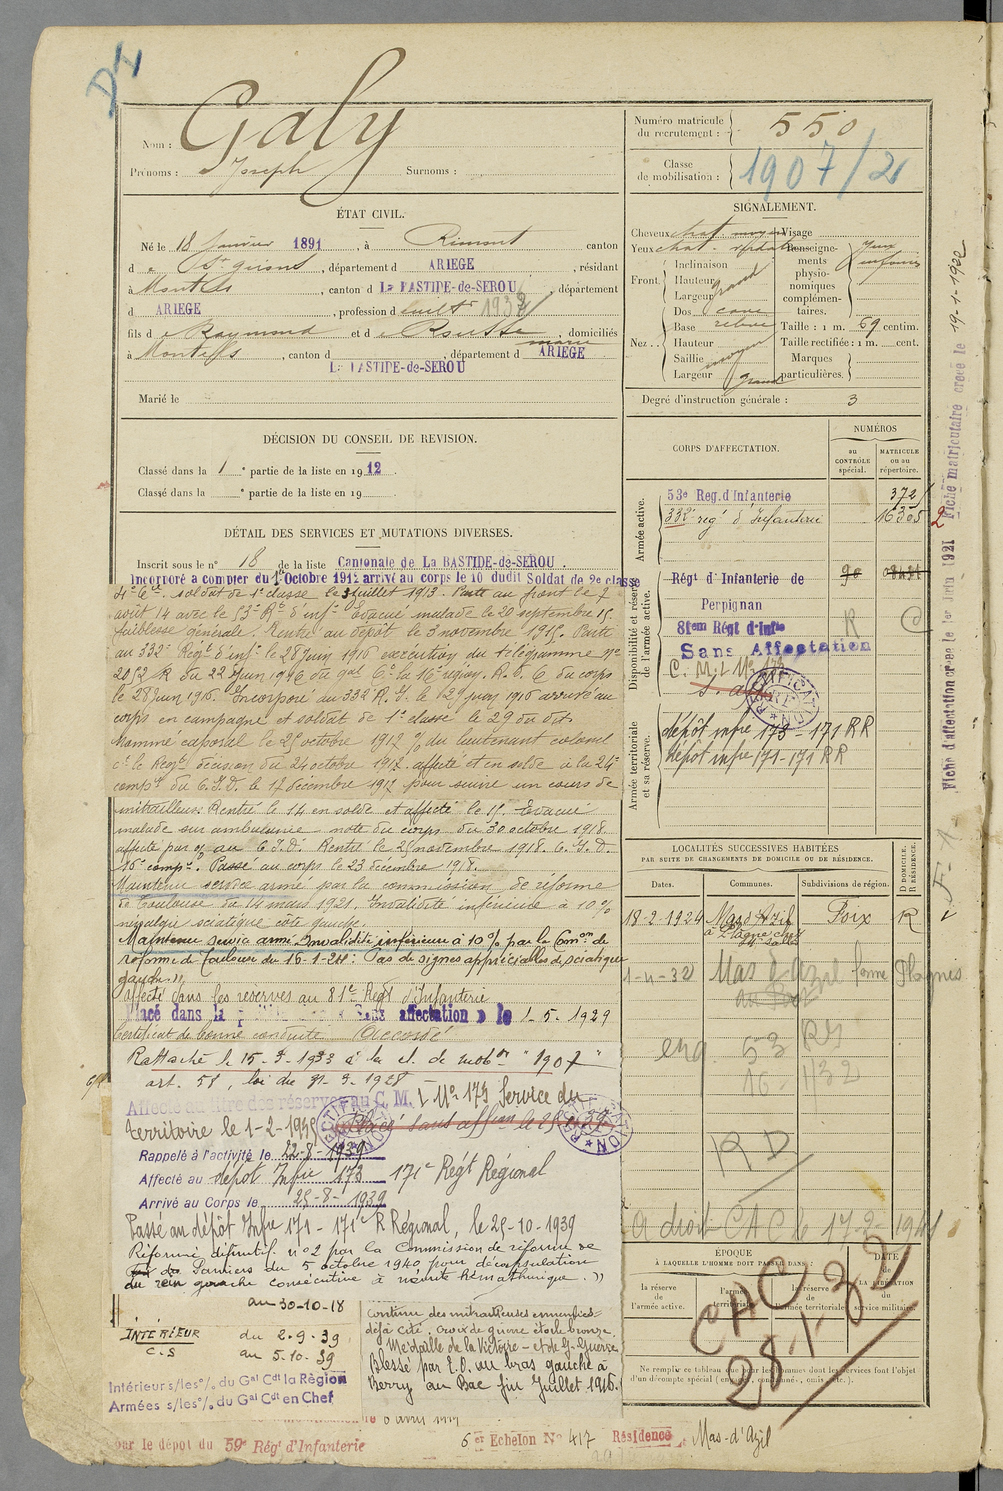 Nom : Galy
Prénoms : Joseph Surnoms :
Numéro matricule du recrutement : 550
Classe de mobilisation : 1907/21
ÉTAT CIVIL.
Né le 18 Janvier 1891, à Rimont canton
d e St Girons, département d ARIEGE, résidant
à Montels, canton d La BASTIDE-de-SEROU, département
d ARIEGE, profession d cult r
fils d e Raymond et d e Rousse Marie, domiciliés
à Montels, canton d La BASTIDE-de-SEROU, département d ARIEGE
Marié le
SIGNALEMENT.
Cheveux chat Visage
Yeux chat. Renseignements physionomiques complémentaires.
Front : Inclinaison
Hauteur grand
Largeur
Nez : Dos cave
Base relevé
Hauteur
Saillie moyen
Largeur grand
Taille : 1 m. 69 centim.
Taille rectifiée : 1 m. cent.
Marques particulières.
Degré d'instruction générale : 3
DÉCISION DU CONSEIL DE REVISION.
Classé dans la 1 e partie de la liste en 1912.
Classé dans la e partie de la liste en 19
DÉTAIL DES SERVICES ET MUTATIONS DIVERSES.
Inscrit sous le n° 18 de la liste Cantonale de La BASTIDE-de-SEROU.
Incorporé à compter du 1er Octobre 1912 arrivé au corps le 10 dudit Soldat de 2e classe
soldat de 1e classe le 3 juillet 1913. Parti au front le 7
août 14 avec le 53e Rt d'inf. Evacué malade le 20 septembre 15.
faiblesse générale. Rentré au dépôt le 3 novembre 1915. Parti
au 332e Regt d'inf. le 28 juin 1916 exécution du télégramme no
2052 R du 22 juin 1916 du gal Ct la 16e région. R. D. C du corps
le 28 juin 1916. Incorporé au 332 R. I. le 29 juin 1916 arrivé au
corps en campagne et soldat de 1e classe le 29 du dit.
Nommé caporal le 25 octobre 1917 o/o du lieutenant colonel
ct le Regt décision du 24 octobre 1917. affecté et en solde à la 24e
compie du C.I.D. le 17 décembre 1917 pour suivre un cours de
mitrailleur. Rentré le 14 en solde et affecté le 15. Evacué
malade sur ambulance note du corps du 30 octobre 1918.
affecté par o/ au C.I.D. Rentré le 25 novembre 1918. C.I.D.
16e compie. Passé au corps le 23 décembre 1918.
Maintenu service armé par la commission de réforme
de Toulouse du 14 mars 1921. Invalidité inférieure à 10%
névralgie sciatique côté gauche.
Maintenu service armé Invalidité inférieure à 10% par la Comon de
réforme de Toulouse du 16-1-24 : Pas de signes appréciables de sciatique
gauche »
affecté dans les réserves au 81e Regt d'Infanterie
Placé dans la Sans affectation » le 1-5-1929
Certificat de bonne conduite Accordé
Rattaché le 15-3-1933 à la cl. de mobon "1907"
art. 58, loi du 31-3-1928
Affecté au titre des réserves au C. M. I No 173 Service du
territoire le 1-2-1938 Placé sans affon le
Rappelé à l'activité le 22-8-1939
Affecté au dépôt Infie 173 171e Régt Régional
Arrivé au Corps le 25-8-1939
Passé au dépôt Infie 171 - 171e R Régional, le 25-10-1939
Réformé définitif. no 2 par la Commission de réforme de
Pamiers du 5 octobre 1940 pour décapsulation
du rein gauche consécutive à néphrite hématurique. »
au 30-10-18
INTÉRIEUR C.S du 2.9.39
au 5.10.39
Intérieur s/les o/o du Gal Cdt la Région
Armées s/les o/o du Gal Cdt en Chef
contre des mitrailleuses ennemies.
déjà cité. croix de guerre étoile bronze.
Médaille de la Victoire - et de Gde Guerre
Blessé par E.O. au bras gauche à
Berry au Bac fin Juillet 1916.
CORPS D'AFFECTATION.
NUMÉROS
au CONTRÔLE spécial.
MATRICULE ou au répertoire.
Armée active.
53e Reg. d'Infanterie 372
332e régt d'Infanterie 16305
Disponibilité et réserve de l'armée active.
Régt d'Infanterie de
Perpignan
81em Régt d'Infie
Sans Affectation
C. M. I No 173
Armée territoriale et sa réserve.
dépôt infie 173 - 171 RR
dépôt infie 171-171 RR
LOCALITÉS SUCCESSIVES HABITÉES
PAR SUITE DE CHANGEMENTS DE DOMICILE OU DE RÉSIDENCE.
Dates. Communes. Subdivisions de région. D DOMICILE. R RÉSIDENCE.
18-2-1924 Mas d'Azil Foix R
1-4-32 Mas d'Azil ferme Plagnes
53 RI
16-1-32
RD
A droit CAC le
ÉPOQUE
À LAQUELLE L'HOMME DOIT PASSER DANS :
la réserve de l'armée active.
l'armée territoriale.
la réserve de l'armée territoriale.
DATE de LA LIBÉRATION du service militaire.
CAC
28.1.32
Ne remplir ce tableau que pour les hommes dont les services font l'objet
d'un décompte spécial
pour le dépôt du 59e Rég t d'Infanterie
6 er Echelon No 417 Résidence, Mas-d'Azil
Fiche d'affectation créée le 1er Juin 1921 Fiche matriculaire créée le 19-1-1922